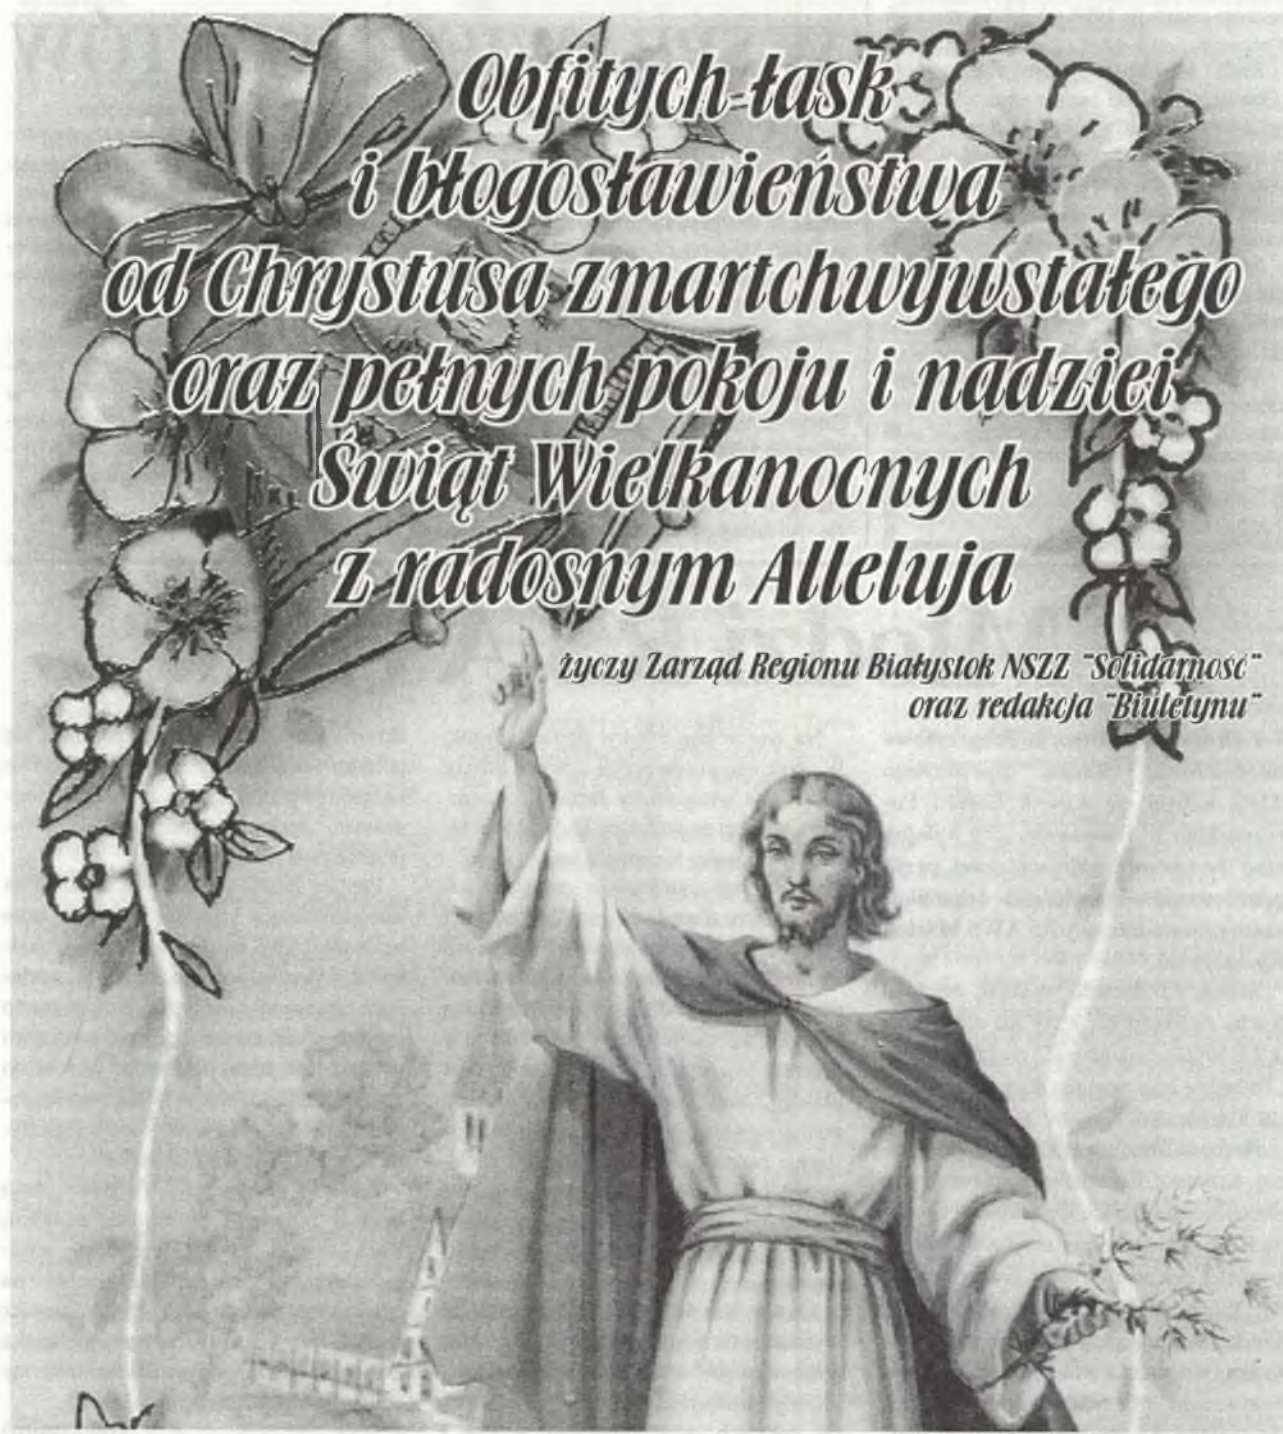 Obfitych łask
i błogosławieństwa
od Chrystusa zmartchwywstałego
oraz pełnych pokoju i nadziei
Świąt Wielkanocnych
z radosnym Alleluja
życzy Zarząd Regionu Białystok NSZZ "Solidarność"
oraz redakcja "Biuletynu"